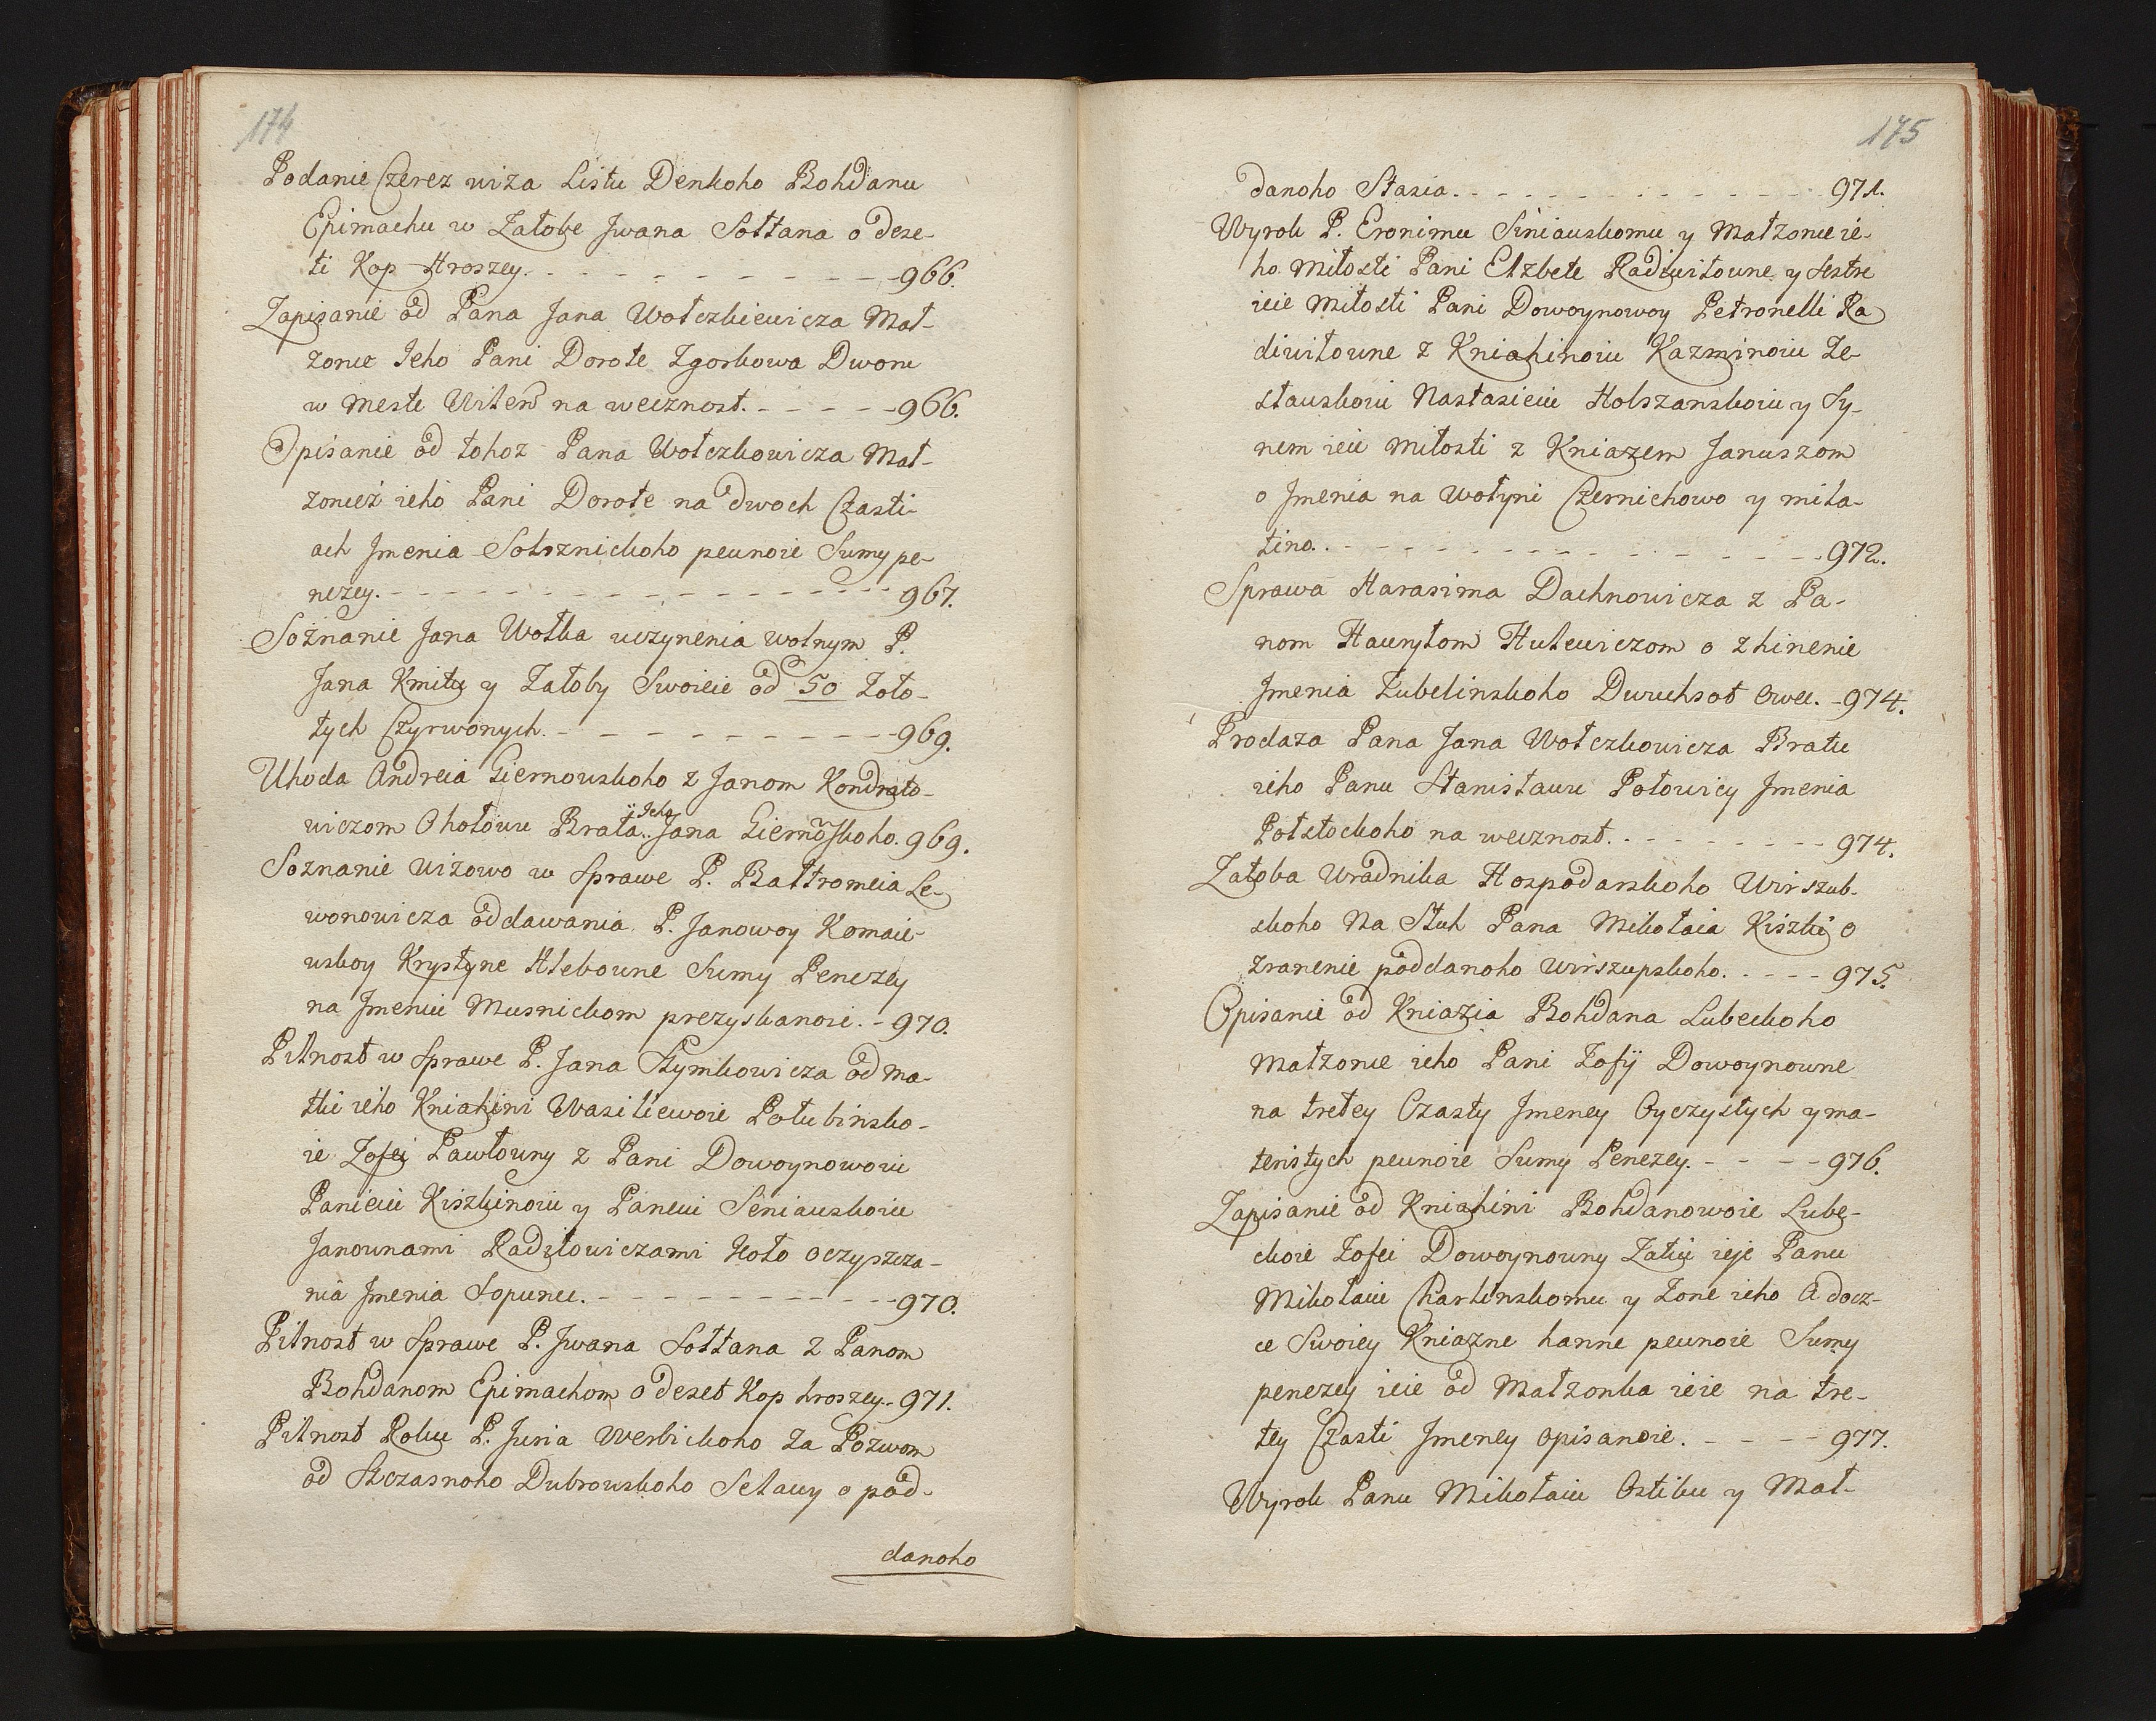 174
Podanie Czerez wiża Listu Denkoho Bohdanu
Epimachu w Załobe Jwana Sołtana o dese-
ti Kop Hroszey. - - - - - - - - - - 966.
Zapisanie od Pana Jana Wołczkiewicza Mał-
zonce Jeho Pani Dorote Zgorkowa Dworu
w meste Witen na wecznost. - - - - - 966.
Opisanie od tohoz Pana Wołczkowicza Mał-
zonce ieho Pani Dorote na dwoch Czasti-
ach Jmenia Solsznickoho pewnoie Sumy pe-
nezey. - - - - - - - - - - - - - - - 967.
Soznanie Jana Wołka uczynenia wolnym P.
Jana Kmitę y Załoby Swoieie od 50 Zoło-
tych Czyrwonych. - - - - - - - - - - 969.
Uhoda Andreia Giernowskoho z Janom Kondrato-
wiczom Ohołowu Brata Jeho Jana Giernoskoho. 969.
Soznanie wiżowo w Sprawe P. Bałtromeia Le-
wonowicza oddawania P. Janowoy Komaie-
wskoy Krystyne Hlebowne Sumy Penezey
na Jmeniu Musnickom prezyskanoie. - 970.
Pilnost w Sprawe P. Jana Szymkowicza od ma-
tki ieho Kniahini Wasiliewoie Połubinsko-
ie Zofei Pawłowny z Pani Dowoynowoiu
Panieiu Kiszkinoiu y Paneiu Seniawskoiu
Janownami Radiłowiczami Koło oczyszcza-
nia Jmenia Sopunu. - - - - - - - - - 970.
Pilnost w Sprawe P. Jwana Sołtana z Panom
Bohdanom Epimachom o deset Kop hroszey. - 971.
Pilnost Roku P. Juria Werbickoho Za Pozwom
od Szczasnoho Dubrowskoho Selawy o pod-
danoho
175
danoho Stasia. - - - - - - - - - - - - 971.
Wyrok P. Eronimu Siniawskomu y małzonce ie-
ho miłosti Pani Elzbete Radiwiłowne y sestre
ieie miłosti Pani Dowoynowoy Petronelli Ra
diwiłowne z Kniahinoiu Kazminoiu Ze-
sławskoiu Nastasieiu Holszanskoiu y Sy-
nem ieie miłosti z Kniazem Januszom
o Jmenia na Wołyni Czernichowo y miła-
tino. - - - - - - - - - - - - - - - 972.
Sprawa Harasima Dachnowicza z Pa-
nom Hawryłom Hulewiczom o zhinenie
Jmenia Zubelinskoho Dwuchsot Owec. - 974.
Prodaza Pana Jana Wołczkowicza Bratu
ieho Panu Stanisławu Połowicy Jmenia
Połstockoho na wecznost. - - - - - - - 974.
Załoba Uradnika Hospodarskoho Wirszub-
skoho Na Sluh Pana Mikołaia Kiszki o
zranenie poddanoho Wirszupskoho. - - - - 975.
Opisanie od Kniazia Bohdana Lubeckoho
małzonce ieho Pani Zofij Dowoynowne
na tretey Czasty Jmeney Oyczystych y ma-
teristych pewnoie Sumy Penezey. - - - - 976.
Zapisanie od Kniahini Bohdanowoie Lube-
ckoie Zofei Dowoynowny Zatiu ieje Panu
Mikołaiu Charlinskomu y Zone ieho A docz-
ce Swoiey Kniazne hanne pewnoie Sumy
penezey ieie od Małzonka ieie na tre-
tey Czasti Jmeney opisanoie. - - - - - 977.
Wyrok Panu Mikołaiu Ostiku y Mał-